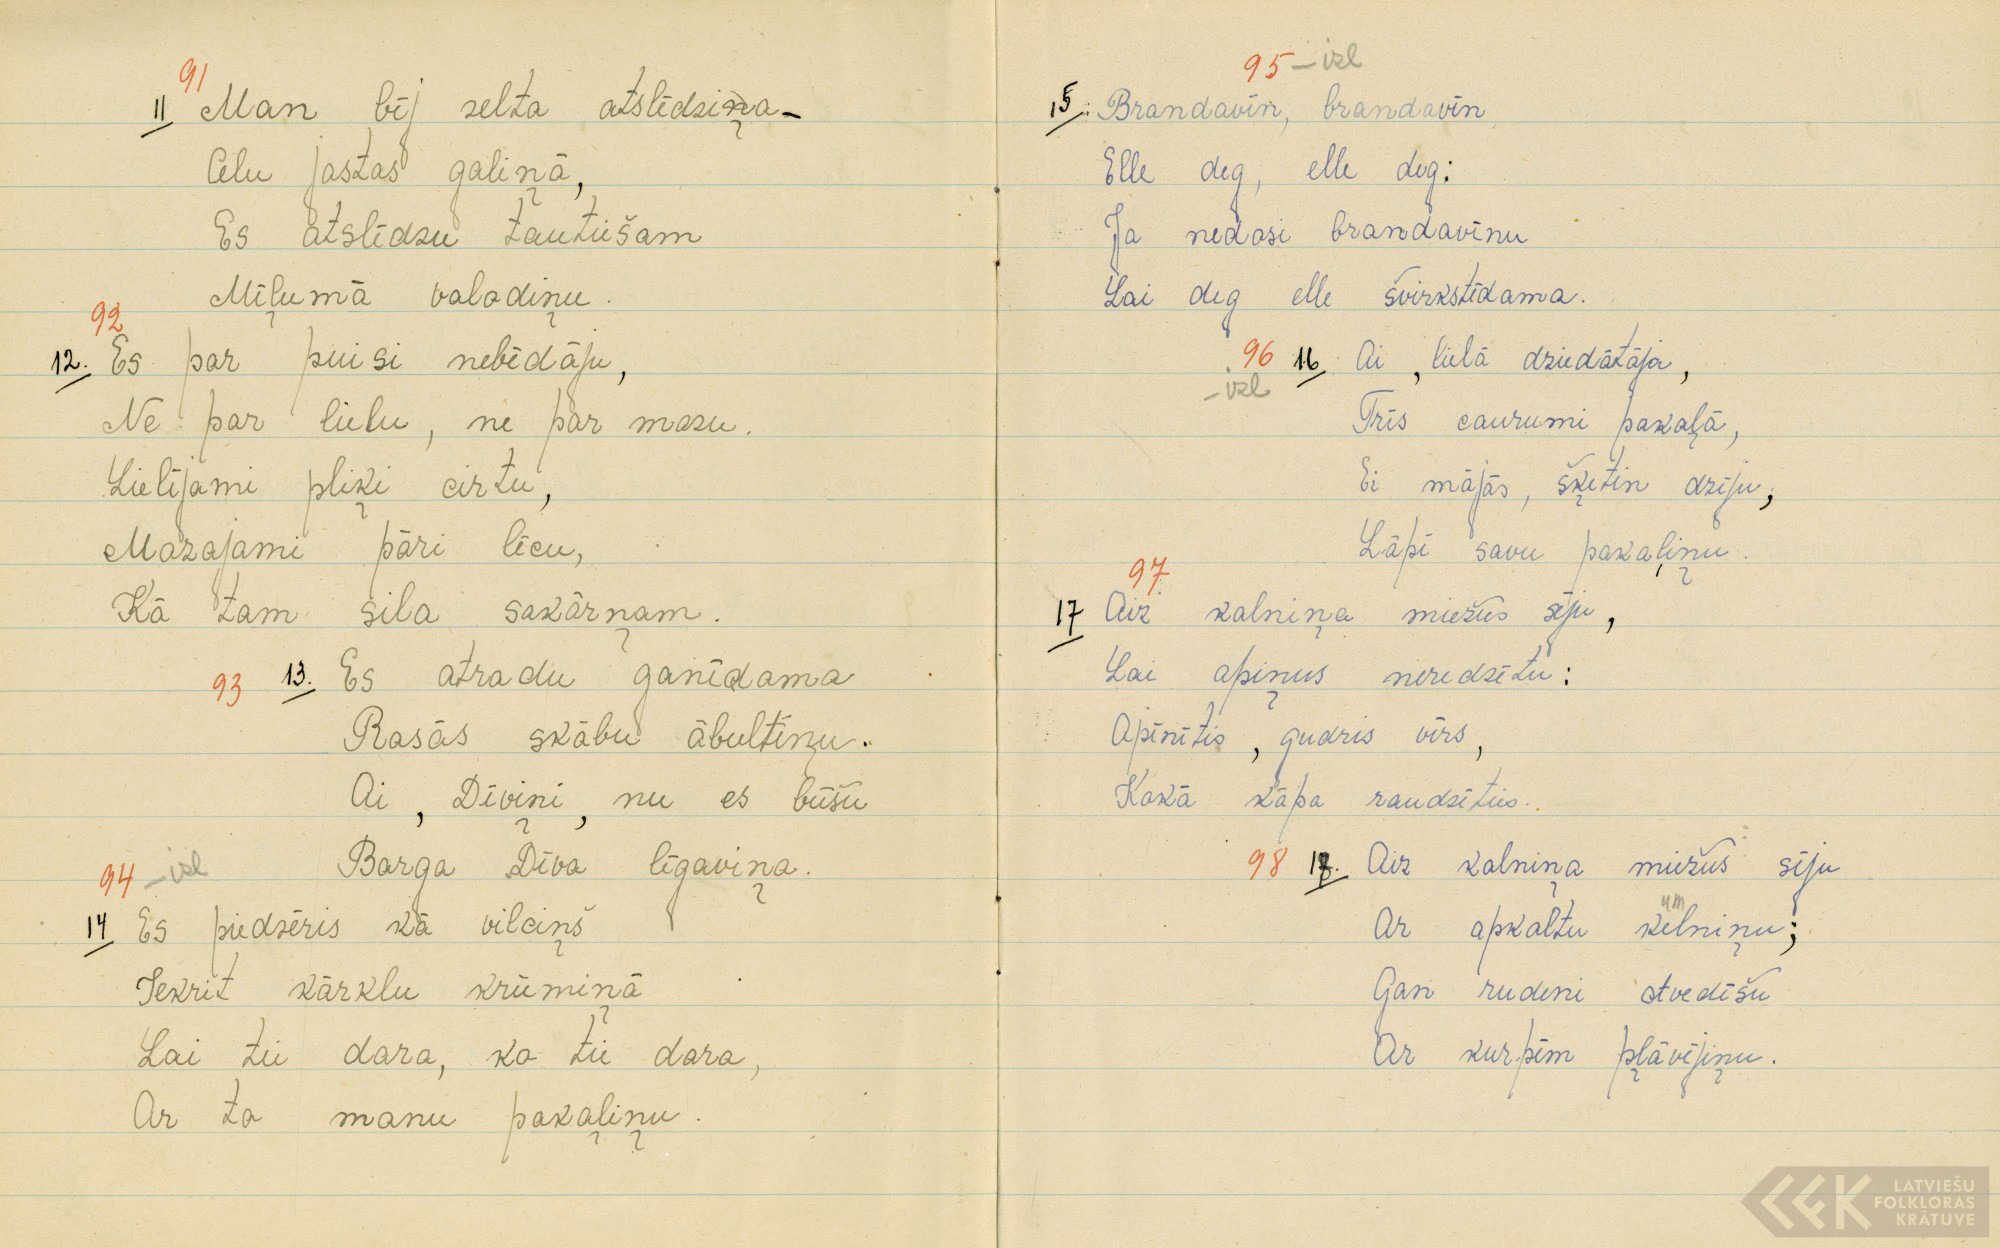 91
11 Man bij zelta atslēdziņa-
Celu jostas galiņā,
Es atslēdzu tautiešam
Mīļumā valodiņu.
92
12. Es par puisi nebēdāju,
Ne par lielu, ne par mazu.
Lielījami pliķi cirtu,
Mazajami pāri lēcu,
Kā tam sila sakārņam.
93 13. Es atradu ganīdama
Rasās skābu ābultiņu.
Ai, Dīviņi, nu es būšu
Barga Dīva līgaviņa.
94 – izl
14 Es piedzēris kā vilciņš
Iekrit kārklu krūmiņā
Lai tie dara, ko tie dara,
Ar to manu pakaļiņu.
95 – izl
15. Brandavīn, brandavīn
Elle deg, elle deg:
Ja nedosi brandavīnu
Lai deg elle švirkstēdama.
96 16 Ai, lielā dziedātāja,
– izl
Trīs caurumi pakaļā,
Ei mājās, šķetin dziju;
Lāpi savu pakaļiņu.
97
17 Aiz kalniņa miežus sēju,
Lai apiņus neredzētu:
Apinītis, gudris vīrs,
Kokā kāpa raudzīties.
98 18. Aiz kalniņa miežus sēju
um
Ar apkaltu kelniņu;
Gan rudeni atvedīšu
Ar kurpēm pļāvējiņu.
LATVIEŠU
FOLKLORAS
KRĀTUVE